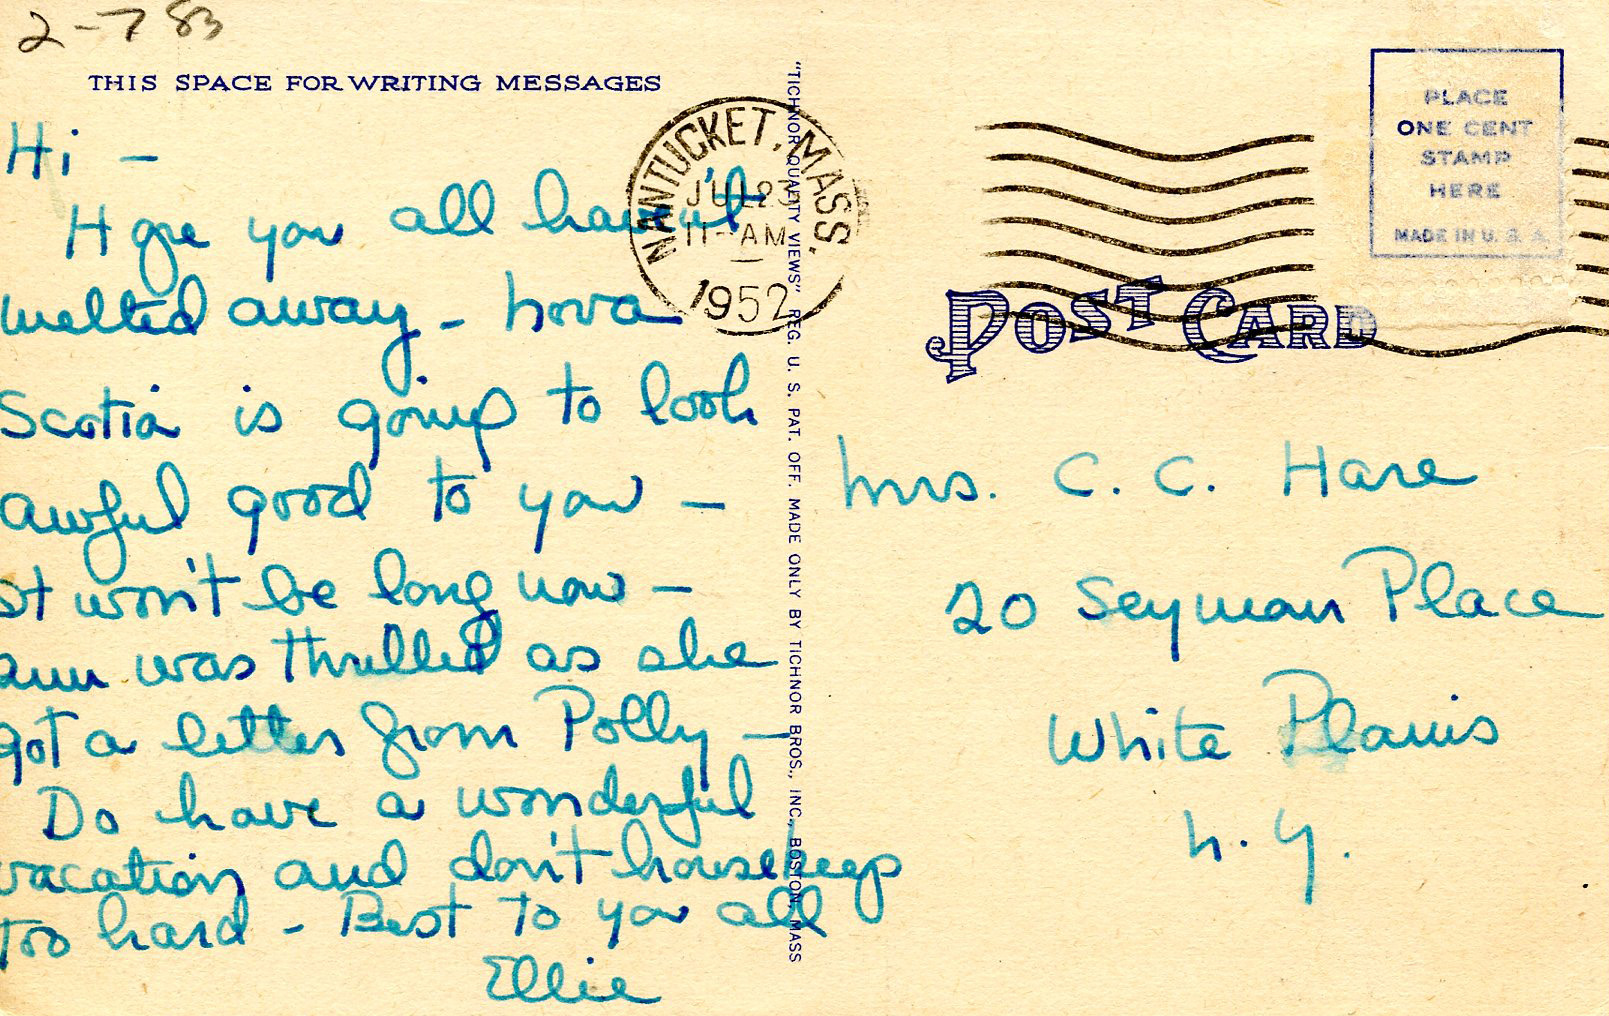 2-7 83
THIS SPACE FOR WRITING MESSAGES
Hi -
Hope you all haven't
melted away - Nova
Scotia is going to look
awful good to you -
It won't be long now -
Ann was thrilled as she
got a letter from Polly -
Do have a wonderful
vacation and don't housekeep
too hard - Best to you all
Ellie
"TICHNOR QUALITY VIEWS" REG. U. S. PAT. OFF. MADE ONLY BY TICHNOR BROS., INC., BOSTON, MASS
NANTUCKET, MASS.
JUL 23
11-AM
1952
PLACE
ONE CENT
STAMP
HERE
MADE IN U. S. A.
POST CARD
Mrs. C. C. Hare
20 Seymour Place
White Plains
N. Y.